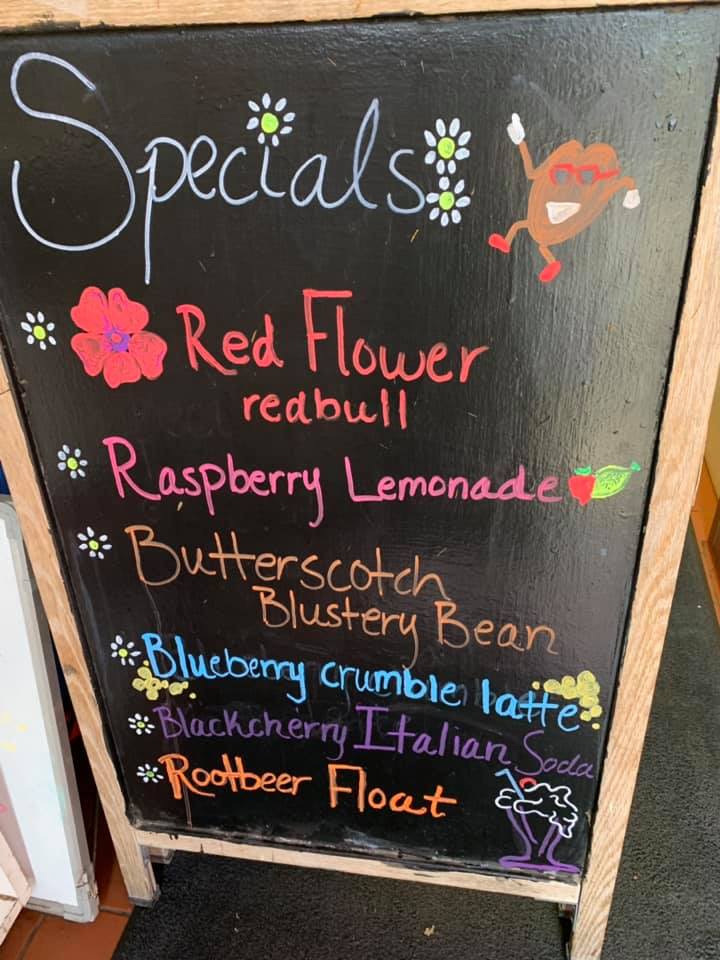 Specials:
Red Flower
redbull
Raspberry Lemonade
Butterscotch
Blustery Bean
Blueberry crumble latte
Blackcherry Italian Soda
Rootbeer Float